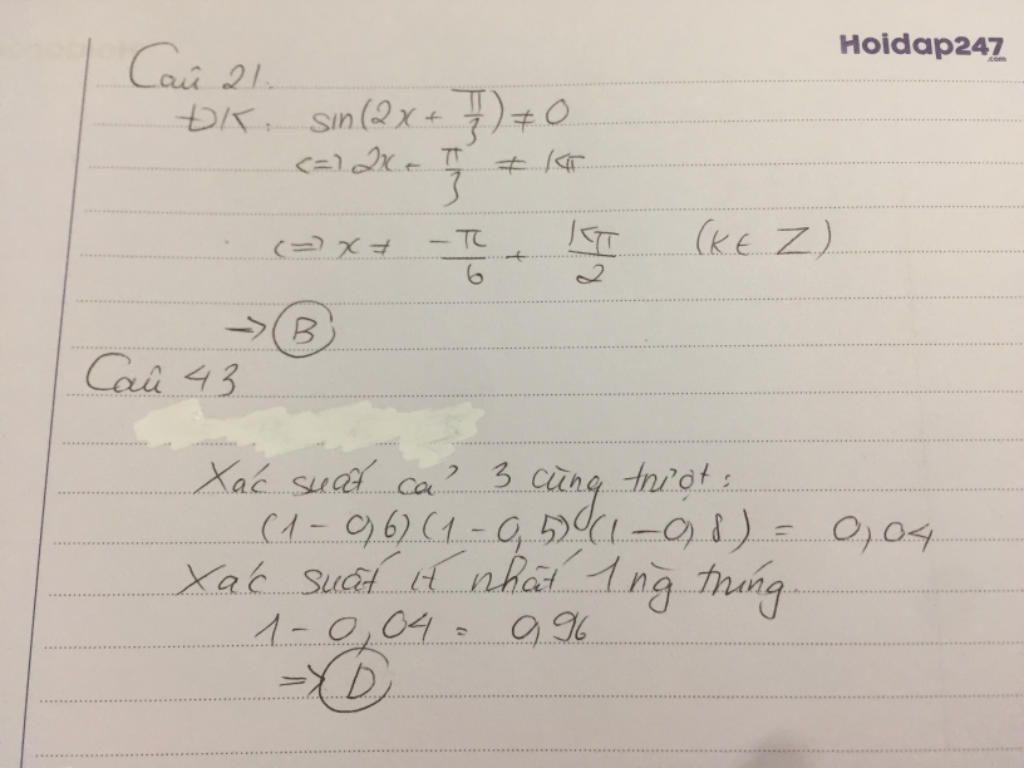 Hoidap247
.com
Câu 21.
ĐK: sin(2x + π/3) ≠ 0
<=> 2x + π/3 ≠ kπ
<=> x ≠ -π/6 + kπ/2 (k ∈ Z)
→ B
Câu 43
Xác suất cả 3 cùng trượt:
(1 - 0,6)(1 - 0,5)(1 - 0,8) = 0,04
Xác suất ít nhất 1 ng` trúng.
1 - 0,04 = 0,96
=> D